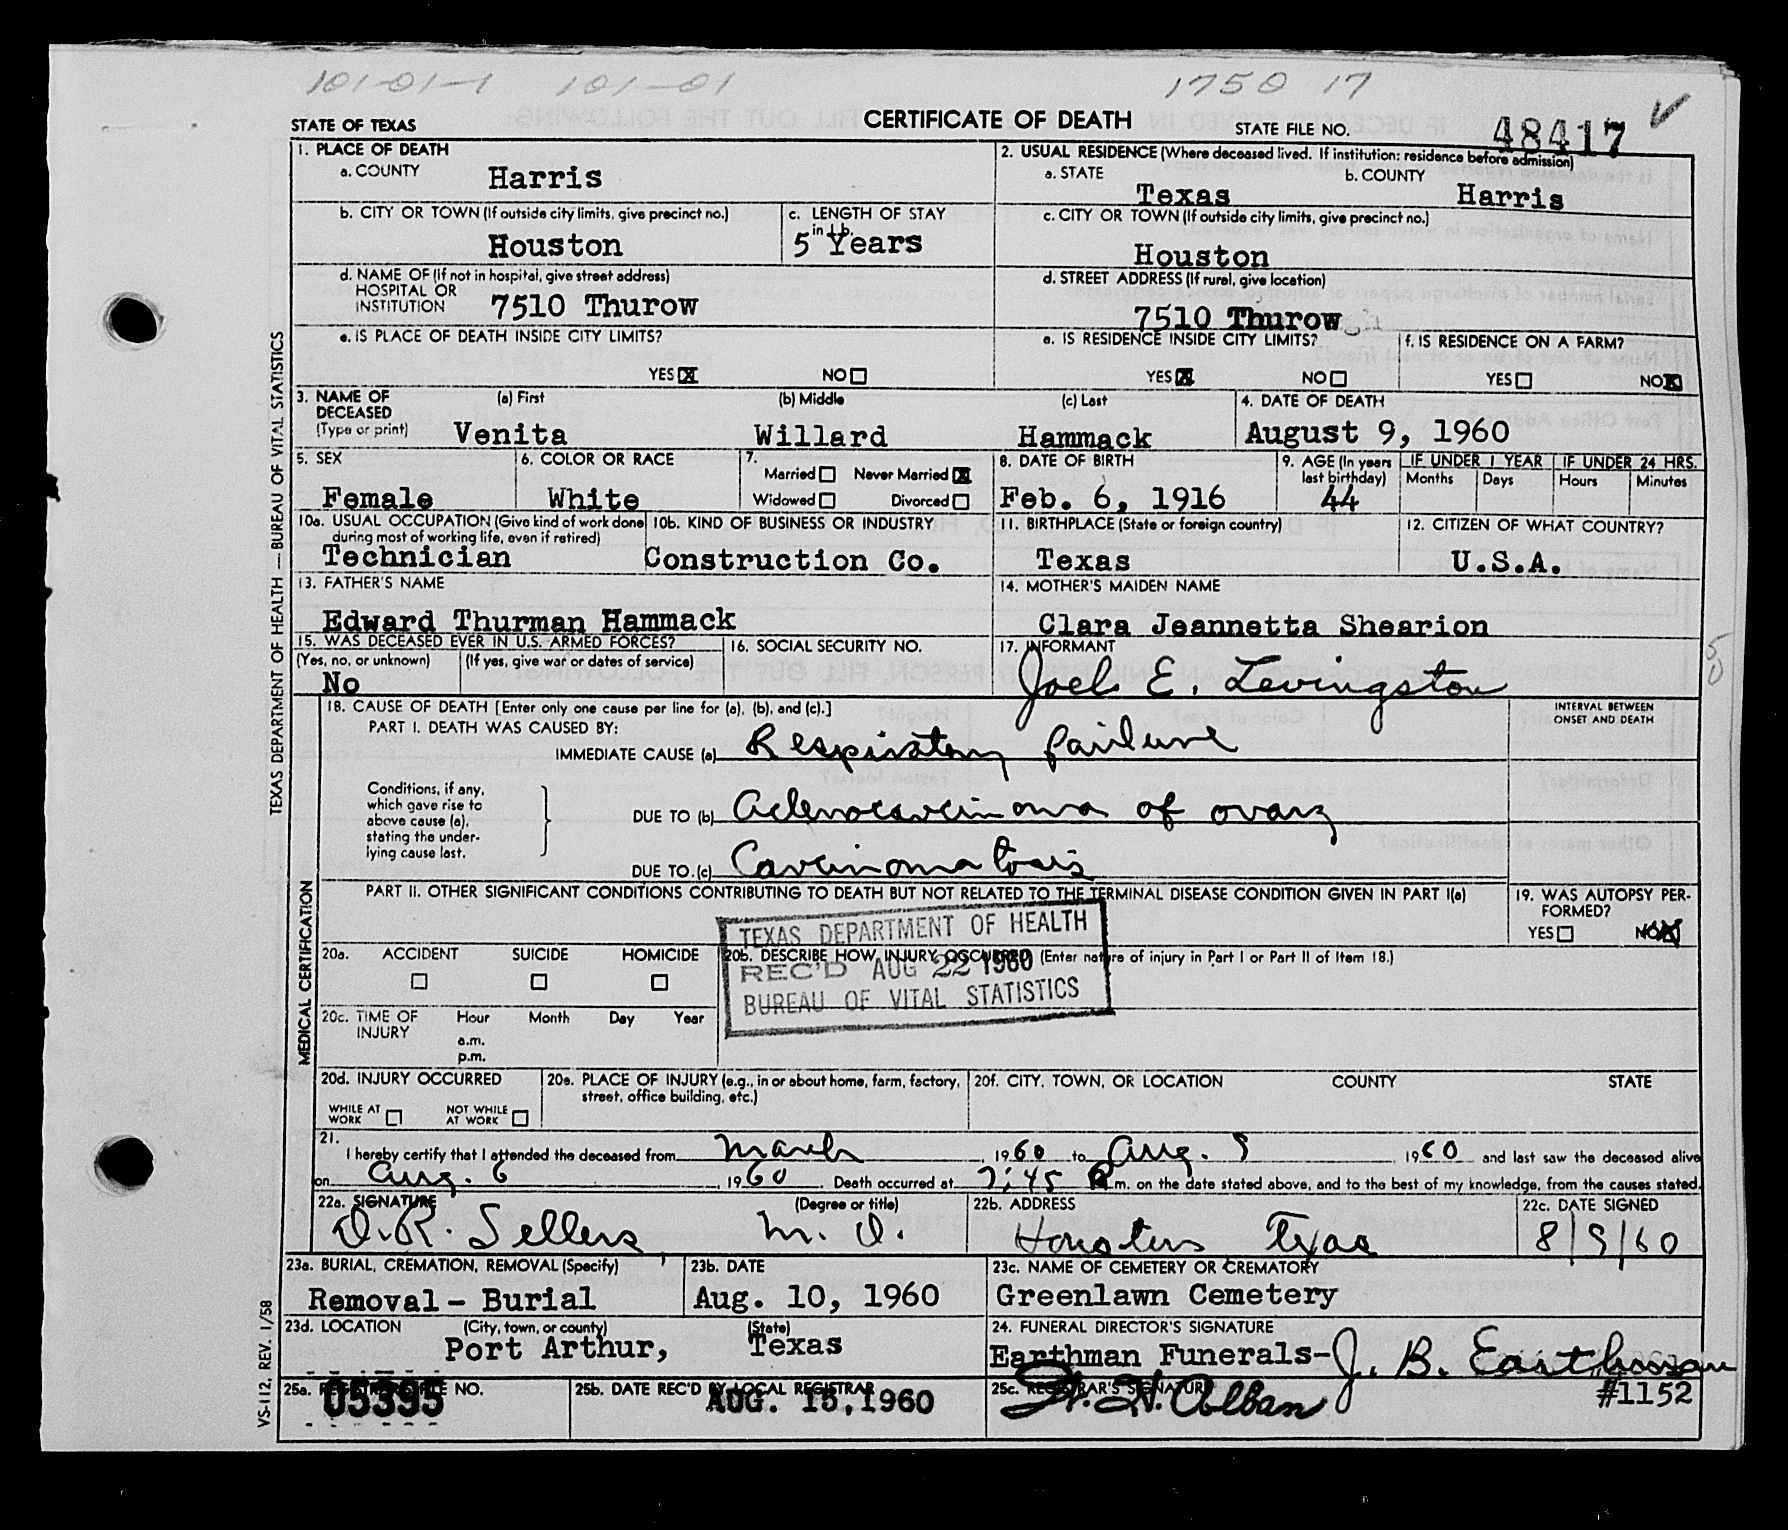 101-01-1 101-01 1750 17
STATE OF TEXAS CERTIFICATE OF DEATH STATE FILE NO. 48417
1. PLACE OF DEATH
a. COUNTY Harris
2. USUAL RESIDENCE (Where deceased lived. If institution: residence before admission)
a. STATE Texas b. COUNTY Harris
b. CITY OR TOWN (If outside city limits, give precinct no.) Houston
c. LENGTH OF STAY in 1b. 5 Years
c. CITY OR TOWN (If outside city limits, give precinct no.) Houston
d. NAME OF (If not in hospital, give street address)
HOSPITAL OR
INSTITUTION 7510 Thurow
d. STREET ADDRESS (If rural, give location)
7510 Thurow
e. IS PLACE OF DEATH INSIDE CITY LIMITS?
YES NO
e. IS RESIDENCE INSIDE CITY LIMITS?
YES NO
f. IS RESIDENCE ON A FARM?
YES NO
3. NAME OF DECEASED (Type or print) (a) First (b) Middle (c) Last
Venita Willard Hammack
4. DATE OF DEATH
August 9, 1960
5. SEX Female
6. COLOR OR RACE White
7. Married Never Married
Widowed Divorced
8. DATE OF BIRTH Feb. 6, 1916
9. AGE (In years last birthday) 44
IF UNDER 1 YEAR Months Days
IF UNDER 24 HRS. Hours Minutes
10a. USUAL OCCUPATION (Give kind of work done during most of working life, even if retired)
Technician
10b. KIND OF BUSINESS OR INDUSTRY
Construction Co.
11. BIRTHPLACE (State or foreign country)
Texas
12. CITIZEN OF WHAT COUNTRY?
U.S.A.
13. FATHER'S NAME
Edward Thurman Hammack
14. MOTHER'S MAIDEN NAME
Clara Jeannetta Shearion
15. WAS DECEASED EVER IN U.S. ARMED FORCES?
(Yes, no, or unknown) (If yes, give war or dates of service)
No
16. SOCIAL SECURITY NO.
17. INFORMANT
Joel E. Levingston
18. CAUSE OF DEATH [Enter only one cause per line for (a), (b), and (c).]
PART I. DEATH WAS CAUSED BY:
INTERVAL BETWEEN ONSET AND DEATH
IMMEDIATE CAUSE (a) Respiratory failure
Conditions, if any, which gave rise to above cause (a), stating the underlying cause last.
DUE TO (b) Adenocarcinoma of ovary
DUE TO (c) Carcinomatosis
PART II. OTHER SIGNIFICANT CONDITIONS CONTRIBUTING TO DEATH BUT NOT RELATED TO THE TERMINAL DISEASE CONDITION GIVEN IN PART I(a)
19. WAS AUTOPSY PERFORMED?
YES NO
TEXAS DEPARTMENT OF HEALTH
REC'D AUG 22 1960
BUREAU OF VITAL STATISTICS
20a. ACCIDENT SUICIDE HOMICIDE
20b. DESCRIBE HOW INJURY OCCURRED (Enter nature of injury in Part I or Part II of Item 18.)
20c. TIME OF INJURY Hour Month Day Year
a.m.
p.m.
20d. INJURY OCCURRED
WHILE AT WORK NOT WHILE AT WORK
20e. PLACE OF INJURY (e.g., in or about home, farm, factory, street, office building, etc.)
20f. CITY, TOWN, OR LOCATION COUNTY STATE
21.
I hereby certify that I attended the deceased from March, 1960 to Aug. 9 1960 and last saw the deceased alive
on Aug. 6, 1960. Death occurred at 7:45 P.m. on the date stated above, and to the best of my knowledge, from the causes stated.
22a. SIGNATURE (Degree or title)
D. R. Sellers, M. D.
22b. ADDRESS
Houston Texas
22c. DATE SIGNED
8/9/60
23a. BURIAL, CREMATION, REMOVAL (Specify)
Removal - Burial
23b. DATE
Aug. 10, 1960
23c. NAME OF CEMETERY OR CREMATORY
Greenlawn Cemetery
23d. LOCATION (City, town, or county) (State)
Port Arthur, Texas
24. FUNERAL DIRECTOR'S SIGNATURE
Earthman Funerals- J. B. Earthman
#1152
25a. REGISTRAR'S FILE NO.
05395
25b. DATE REC'D BY LOCAL REGISTRAR
AUG. 15, 1960
25c. REGISTRAR'S SIGNATURE
W. Alban
TEXAS DEPARTMENT OF HEALTH — BUREAU OF VITAL STATISTICS
MEDICAL CERTIFICATION
VS-112, REV. 1/58